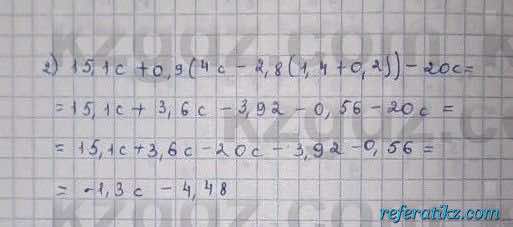 2) 15,1c + 0,9(4c - 2,8(1,4 + 0,2)) - 20c =
= 15,1c + 3,6c - 3,92 - 0,56 - 20c =
= 15,1c + 3,6c - 20c - 3,92 - 0,56 =
= -1,3c - 4,48
referatikz.com